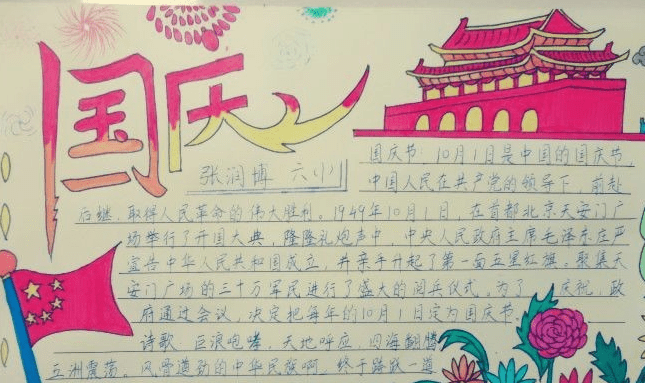 国庆
张润博 六(小)
国庆节:10月1日是中国的国庆节,
中国人民在共产党的领导下,前赴
后继,取得人民革命的伟大胜利。1949年10月1日,在首都北京天安门广
场举行了开国大典,隆隆礼炮声中,中央人民政府主席毛泽东庄严
宣告中华人民共和国成立,并亲手升起了第一面五星红旗。聚集天
安门广场的三十万军民进行了盛大的阅兵仪式。为了 庆祝,政
府通过会议,决定把每年的10月1日定为国庆节
诗歌 巨浪咆哮,天地呼应,四海翻腾
五洲震荡。风骨遒劲的中华民族啊,终于踏跃一道